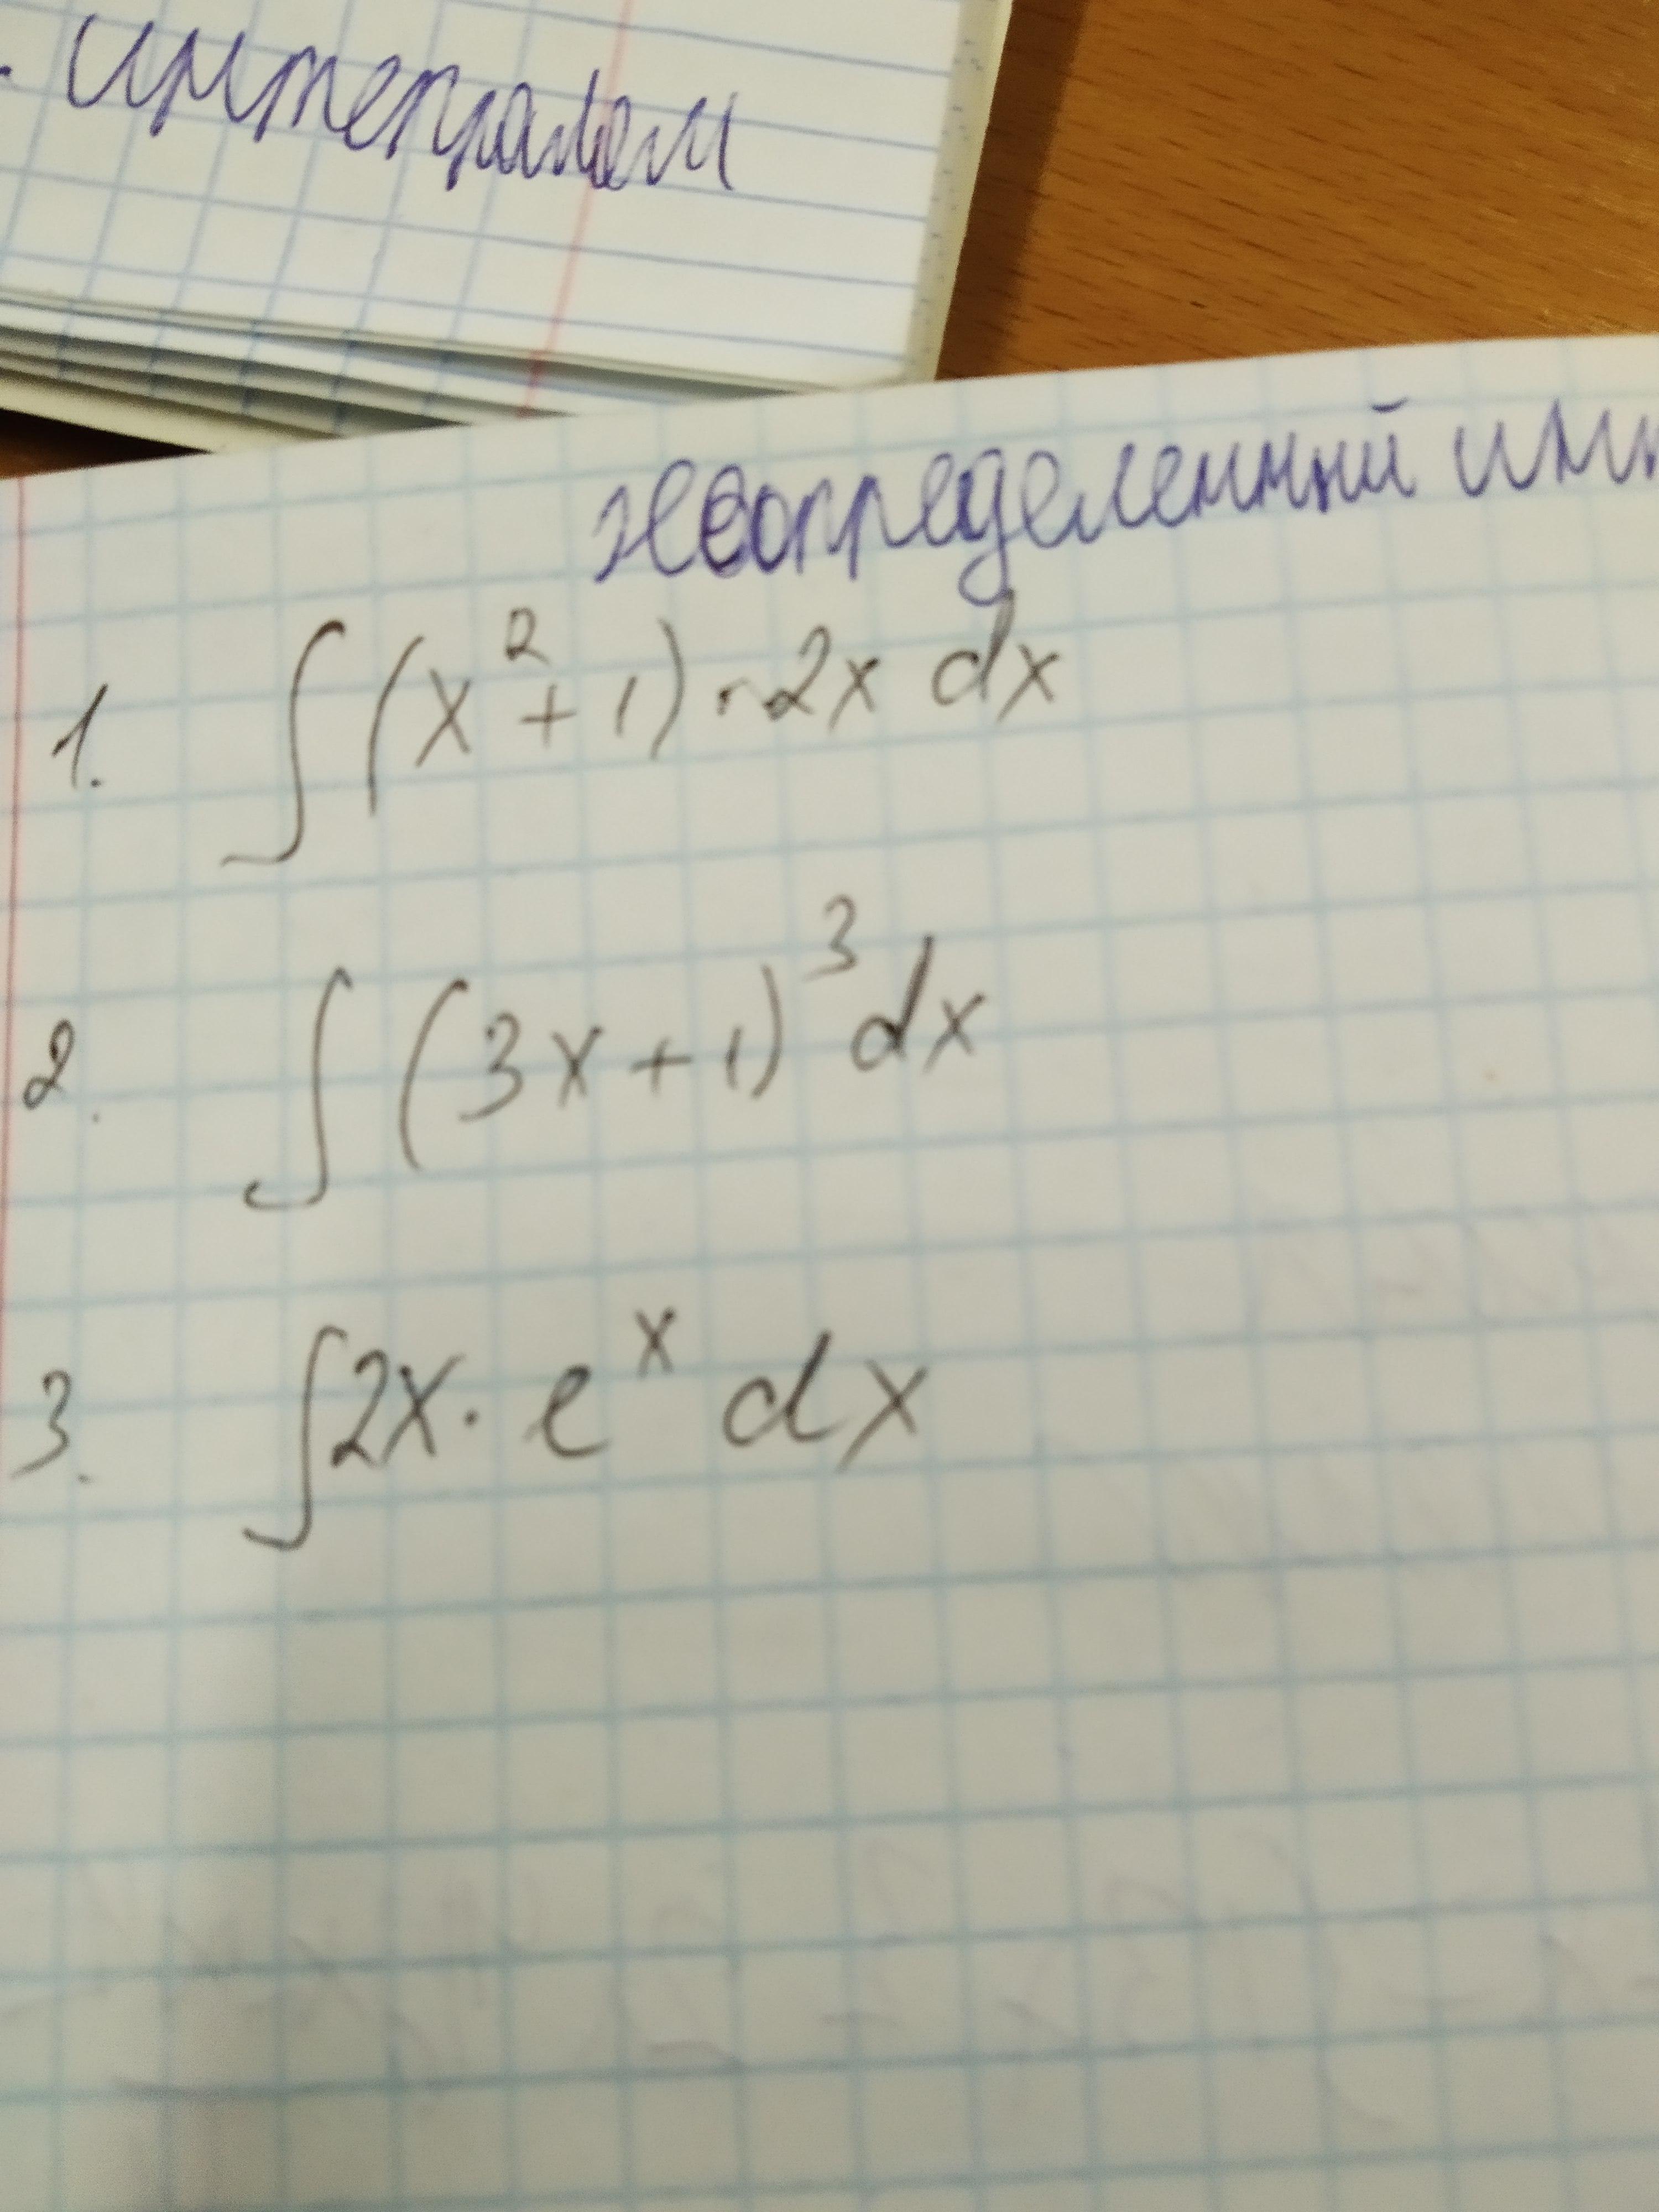 интегралы
неопределенный инт
1. ∫(x²+1)·2x dx
2. ∫(3x+1)³dx
3. ∫2x·eˣ dx